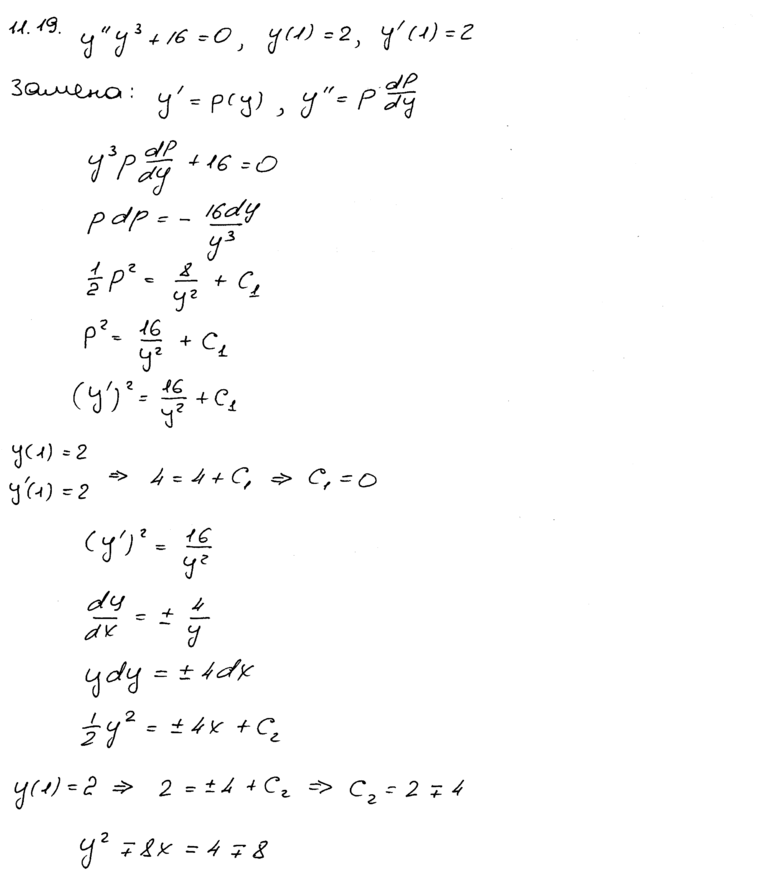 11.19. y''y³ + 16 = 0, y(1) = 2, y'(1) = 2
Замена: y' = p(y), y'' = p dp/dy
y³p dp/dy + 16 = 0
p dp = - 16dy/y³
1/2 p² = 8/y² + C₁
p² = 16/y² + C₁
(y')² = 16/y² + C₁
y(1) = 2
y'(1) = 2 ⇒ 4 = 4 + C₁ ⇒ C₁ = 0
(y')² = 16/y²
dy/dx = ± 4/y
ydy = ± 4dx
1/2 y² = ± 4x + C₂
y(1) = 2 ⇒ 2 = ± 4 + C₂ ⇒ C₂ = 2 ∓ 4
y² ∓ 8x = 4 ∓ 8